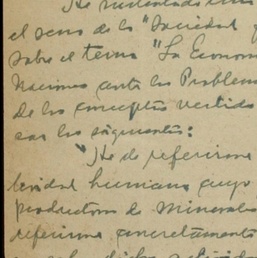 He
el seno de la "Sociedad
sobre el tema "La Econom
Naciones ante los Problem
De los conceptos vertido
car los siguientes:
"He de referirme
tividad humana cuyo
productora de Minerales
referirme concretamente